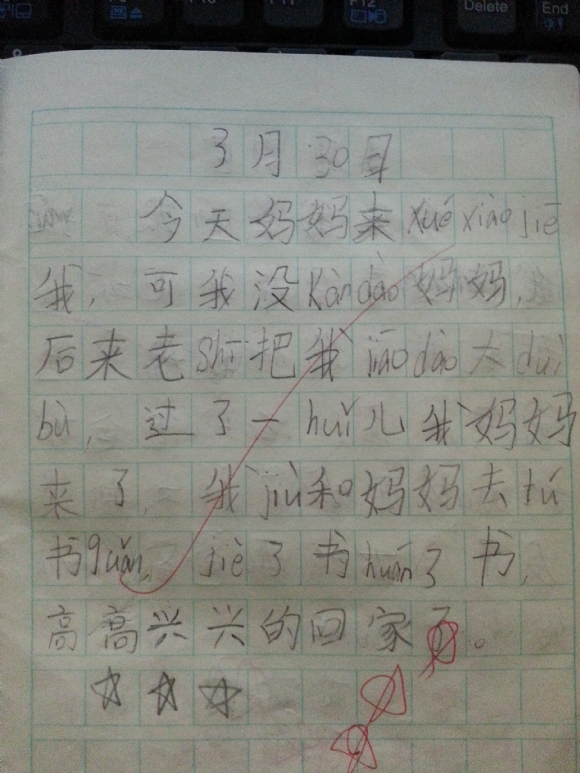 F12
Delete
End
3月30日
今天妈妈来xué xiào jiē
我，可我没kàn dào妈妈，
后来老shī把我jiāo dào大duì
bù，过了一huǐ儿我妈妈
来了，我jiù和妈妈去tú
书guǎn，jiè了书huán了书，
高高兴兴的回家了。